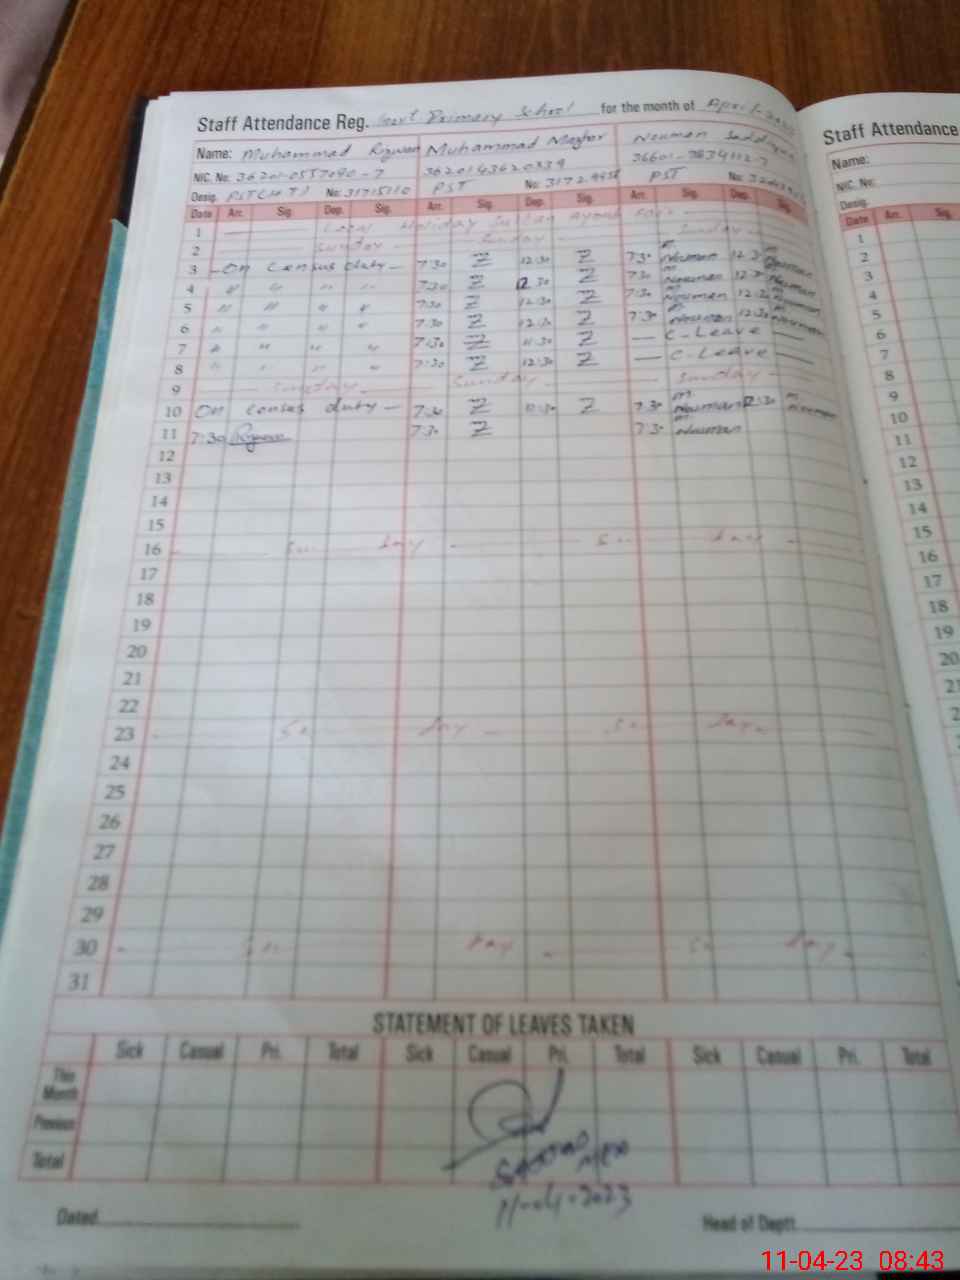 Staff Attendance Reg. Govt Primary School for the month of April-
Name: Muhammad Rizwan Muhammad Nouman
NIC. No: 36201-0557090-7 3620143620339 36601-
Desig. PST No: 31715110 PST No: PST No:
Date Arr. Sig. Dep. Sig. Arr. Sig. Dep. Sig. Arr. Sig. Dep. Sig.
1 Local Holiday
2 Sunday Sunday Sunday
3 On Census duty 7:30 Z 12:30 Z 7:30 Nouman 12:30 Nouman
4 " " " " 7:30 Z 12:30 Z 7:30 Nouman 12:30 Nouman
5 " " " " 7:30 Z 12:30 Z 7:30 Nouman 12:30 Nouman
6 " " " " 7:30 Z 12:30 Z 7:30 Nouman 12:30 Nouman
7 " " " " 7:30 Z 11:30 Z — C-Leave —
8 " " " " 7:30 Z 12:30 Z — C-Leave —
9 Sunday Sunday Sunday
10 On census duty 7:30 Z 12:30 Z 7:30 Nouman 12:30 Nouman
11 7:30 Rizwan 7:30 Z 7:30 Nouman
12
13
14
15
16 Sun day Sun day
17
18
19
20
21
22
23 Sun day Sun day
24
25
26
27
28
29
30 Sun day Sun day
31
STATEMENT OF LEAVES TAKEN
Sick Casual Pri. Total Sick Casual Pri. Total Sick Casual Pri. Total
This Month
Previous
Total
11-04-2023
Dated Head of Deptt.
Staff Attendance
Name:
NIC. No:
Desig.
Date Arr. Sig.
1
2
3
4
5
6
7
8
9
10
11
12
13
14
15
16
17
18
19
20
11-04-23 08:43